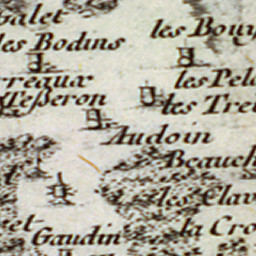 Galet
les Bodins
les Bouy
reaux
Tesseron
les Pel
les Tre
Audoin
Beauch
les Clav
et
Gaudin
la Cro